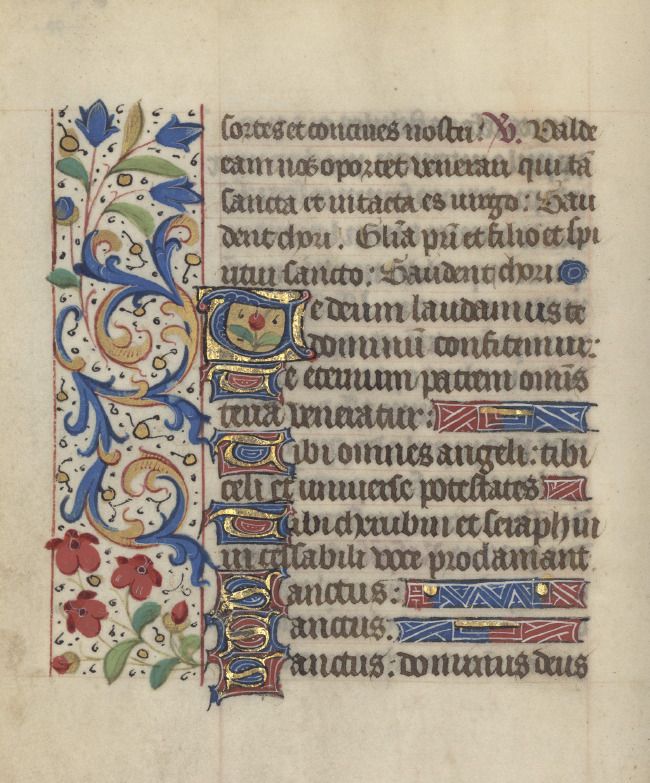 sortes et conciues nostri. V. Valde
eam nos oportet venerari qui tā
sancta et intacta es uirgo: Gau
dent chori. Gl̄ia pr̄i et filio et spi
ritui sancto: Gaudent chori
Te deum laudamus te
dominū confitemur:
Te eternum patrem omīs
terra veneratur:
Tibi omnes angeli: tibi
celi et uniuerse potestates
Tibi cherubin et seraphin
incessabili voce proclamant
Sanctus:
Sanctus.
Sanctus: dominus deus